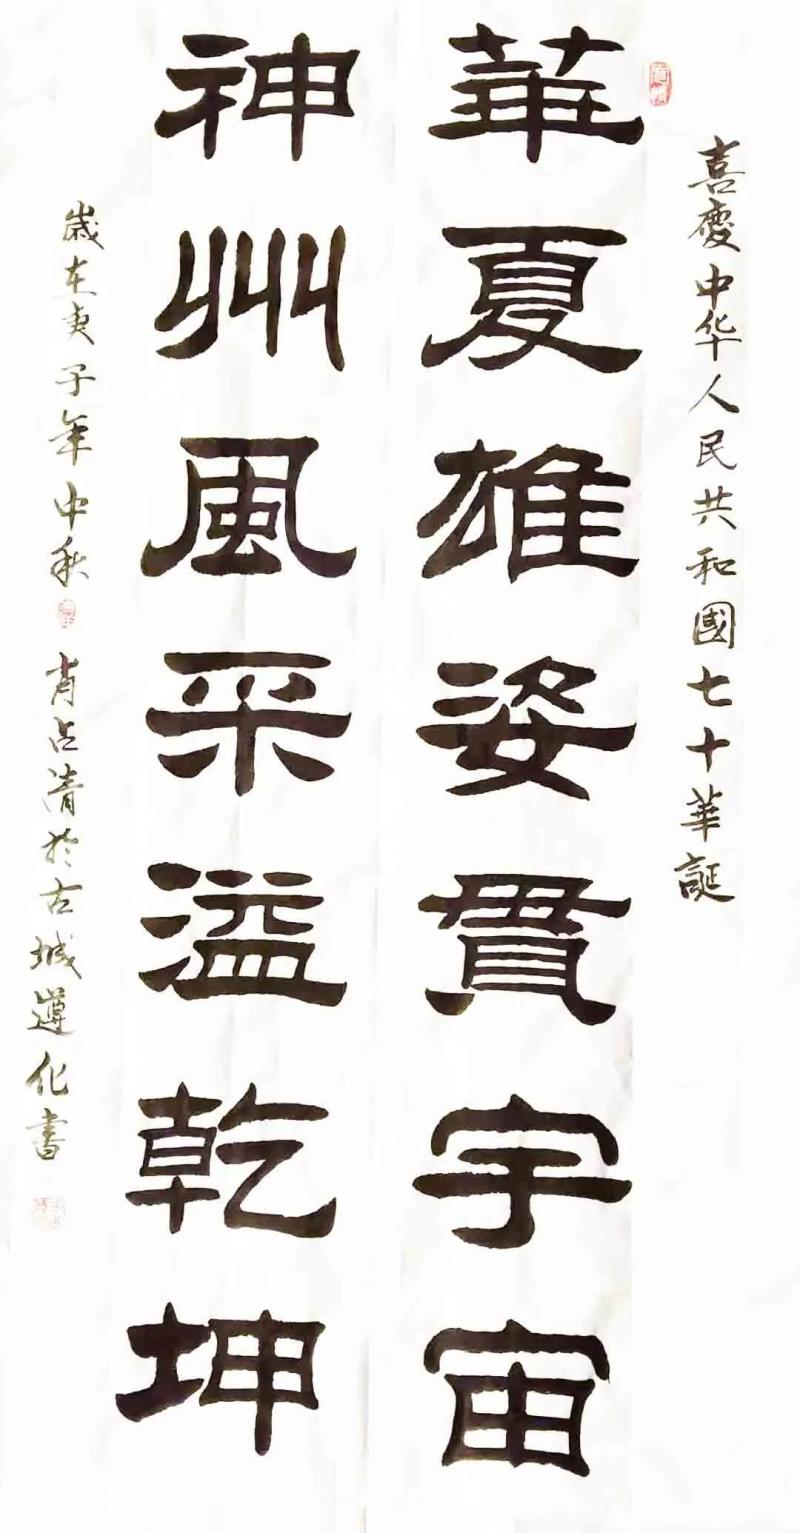 喜慶中华人民共和國七十華誕
華夏雄姿貫宇宙
神州風采溢乾坤
歲在庚子年中秋
肖占清於古城遵化書